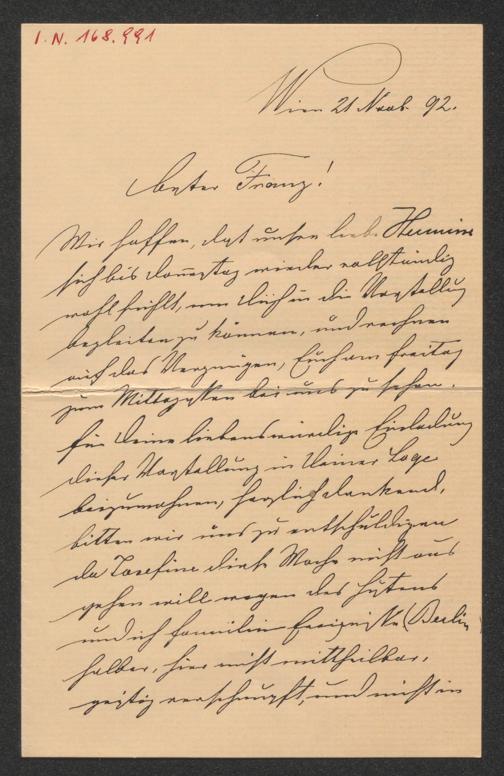 I.N. 168.991
Wien 21 Novb. 92.
Bester Franz!
Wir hoffen, daß unsere liebe Hermine
sich bis Donnerstag wieder vollständig
wohl fühlt, um Dich in die Vorstellung
begleiten zu können, und rechnen
auf das Vergnügen, Euch am Freitag
zum Mittagessen bei uns zu sehen.
Für Deine liebenswürdige Einladung
dieser Vorstellung in Deiner Loge
beizuwohnen, herzlich dankend,
bitten wir uns zu entschuldigen
da Josefine diese Woche nicht aus
gehen will wegen des Hustens
und ich familien Ereigniße (Berlin
halber, hier nicht mittheilbar,
geistig verschnupft, und nicht in